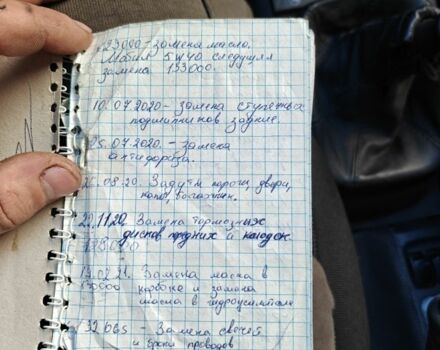 123000 - замена масло.
Мобил 5W40 следущая
замена 133000.
10.07.2020 - замена ступечных
подшипников задние.
25.07.2020. - замена
антифриза.
26.08.20. Задуты пороги, двери,
капот, багажник.
22.11.20. Замена тормозных
дисков передних и колодок
13.02.21. Замена масла в
коробке и замена
масла в гидроусилителе
132.665 - Замена свечей
и брони проводов